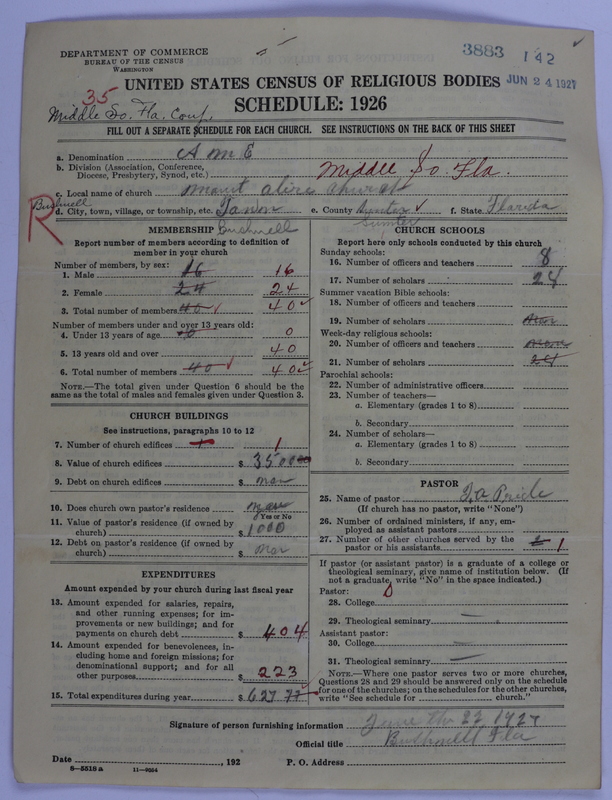 DEPARTMENT OF COMMERCE
BUREAU OF THE CENSUS
WASHINGTON
3883 142
JUN 24 1927
UNITED STATES CENSUS OF RELIGIOUS BODIES
SCHEDULE: 1926
35
Middle So. Fla. Conf.
FILL OUT A SEPARATE SCHEDULE FOR EACH CHURCH. SEE INSTRUCTIONS ON THE BACK OF THIS SHEET
a. Denomination A M E
b. Division (Association, Conference, Diocese, Presbytery, Synod, etc.) Middle So. Fla.
c. Local name of church mount olive church
R Bushnell
d. City, town, village, or township, etc. e. County Sumter f. State Florida
Bushnell Sumter
MEMBERSHIP
Report number of members according to definition of
member in your church
Number of members, by sex:
1. Male 16 16
2. Female 24 24
3. Total number of members 40 40
Number of members under and over 13 years old:
4. Under 13 years of age 0
5. 13 years old and over 40
6. Total number of members 40 40
NOTE.—The total given under Question 6 should be
same as the total of males and females given under Question 3.
CHURCH BUILDINGS
See instructions, paragraphs 10 to 12
7. Number of church edifices 1
8. Value of church edifices $ 3500
9. Debt on church edifices $
10. Does church own pastor's residence
Yes or No
11. Value of pastor's residence (if owned by
church) $ 1000
12. Debt on pastor's residence (if owned by
church) $
EXPENDITURES
Amount expended by your church during last fiscal year
13. Amount expended for salaries, repairs,
and other running expenses; for im-
provements or new buildings; and for
payments on church debt $ 404
14. Amount expended for benevolences, in-
cluding home and foreign missions; for
denominational support; and for all
other purposes $ 223
15. Total expenditures during year $ 627.77
CHURCH SCHOOLS
Report here only schools conducted by this church
Sunday schools:
16. Number of officers and teachers 8
17. Number of scholars 24
Summer vacation Bible schools:
18. Number of officers and teachers
19. Number of scholars
Week-day religious schools:
20. Number of officers and teachers
21. Number of scholars 24
Parochial schools:
22. Number of administrative officers
23. Number of teachers—
a. Elementary (grades 1 to 8)
b. Secondary
24. Number of scholars—
a. Elementary (grades 1 to 8)
b. Secondary
PASTOR
25. Name of pastor
(If church has no pastor, write "None")
26. Number of ordained ministers, if any, em-
ployed as assistant pastors
27. Number of other churches served by the
pastor or his assistants 1
If pastor (or assistant pastor) is a graduate of a college or
theological seminary, give name of institution below. (If
not a graduate, write "No" in the space indicated.)
Pastor:
28. College
29. Theological seminary
Assistant pastor:
30. College
31. Theological seminary
NOTE.—Where one pastor serves two or more churches,
Questions 28 and 29 should be answered only on the schedule
for one of the churches; on the schedules for the other churches,
write "See schedule for church."
Signature of person furnishing information June the 22 1927
Official title Bushnell Fla
Date , 192 P. O. Address
8—5518 a 11—9024